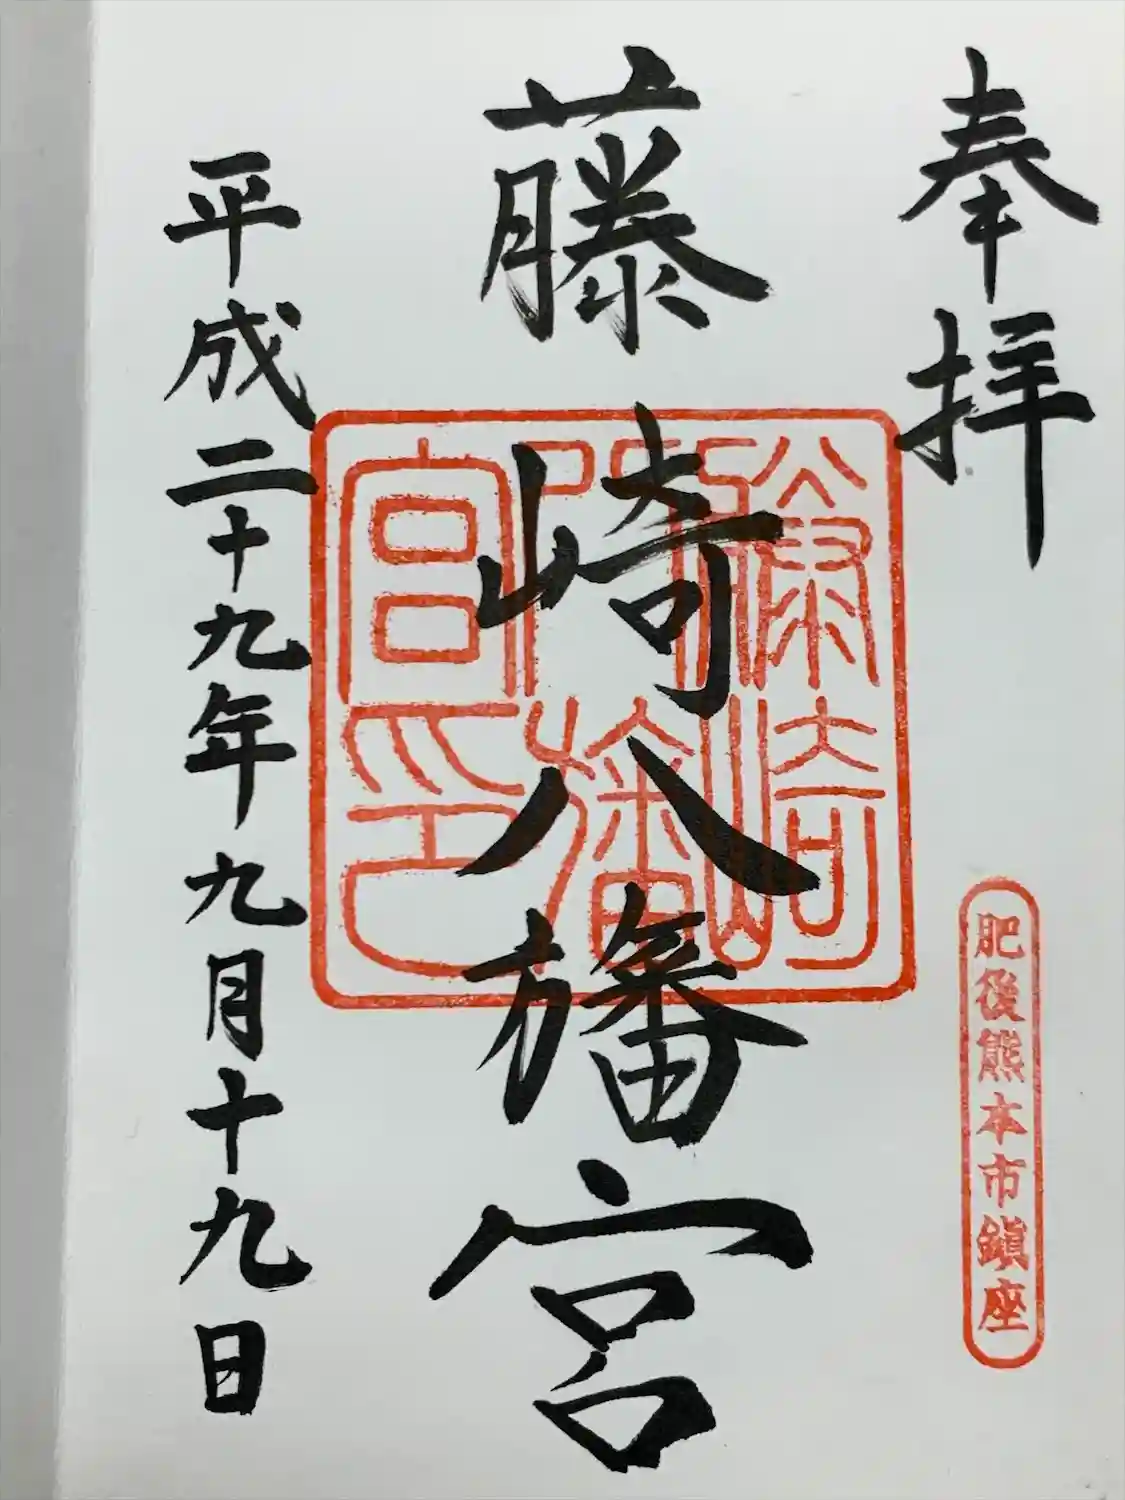 奉拝
肥後熊本市鎮座
藤崎八旛宮
藤崎八旛宮印
平成二十九年九月十九日